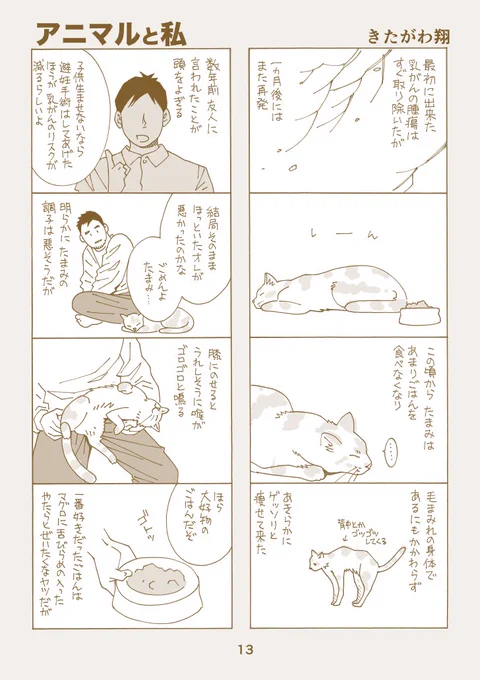 アニマルと私
きたがわ翔
最初に出来た
乳がんの腫瘍は
すぐ取り除いたが
一ヵ月後には
また再発
しーん
この頃から たまみは
あまりごはんを
食べなくなり
……
毛まみれの身体で
あるにもかかわらず
背中とか
ゴツゴツ
してくる
あきらかに
ゲッソリと
痩せて来た
数年前 友人に
言われたことが
頭をよぎる
子供生ませないなら
避妊手術はしてあげた
ほうが 乳がんのリスクが
減るらしいよ
結局そのまま
ほっといたオレが
悪かったのかな
ごめんよ
たまみ…
明らかに たまみの
調子は悪そうだが
膝にのせると
うれしそうに喉が
ゴロゴロと鳴る
ほら
大好物の
ごはんだぞ
ゴトッ
一番好きだったごはんは
マグロに舌びらめの入った
やたらとぜいたくなヤツだが
13